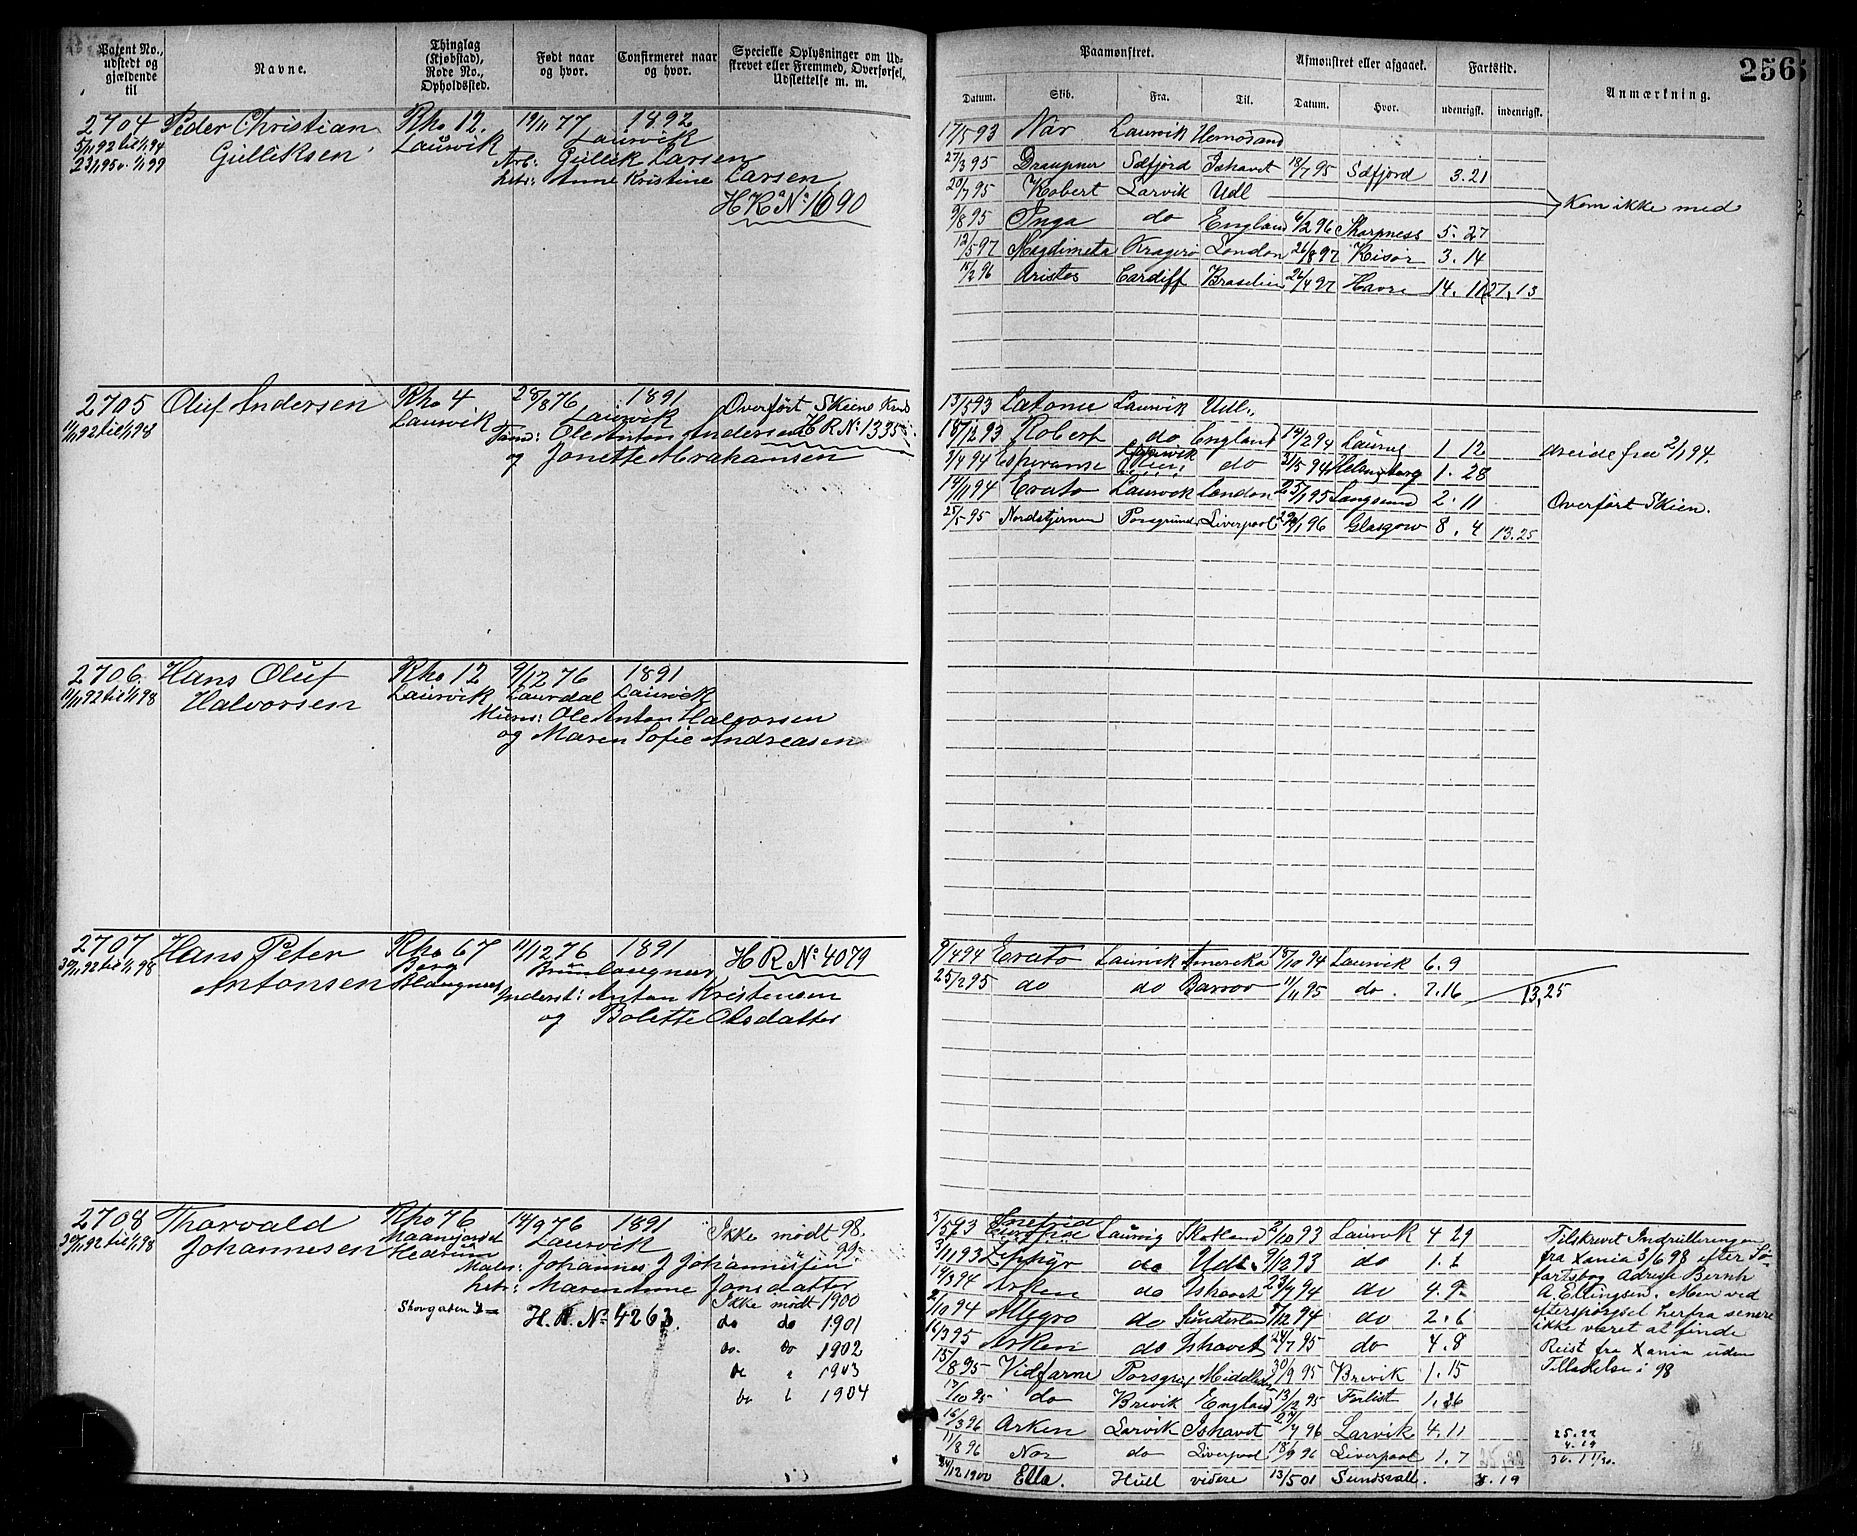 Patent No., udstedt og gjældende til
Navne.
Thinglag (Kjøbstad), Rode No., Opholdssted.
Født naar og hvor.
Confirmeret naar og hvor.
Specielle Oplysninger om Udskrevet eller Fremmed, Overførsel, Udslettelse m. m.
Paamønstret.
Afmønstret eller afgaaet.
Fartstid.
256
Datum. Skib. Fra. Til. Datum. Hvor. udenrigsk. indenrigsk. Anmærkning.
2704 Peder Christian Rho 12. 19/11 77 1892
5/11 92 til 1/1 94 Gulliksen Laurvik Laurvik
Arb: Gullik Larsen
Anne Kristine Larsen
H R No 1690
17/5 93 Nar Laurvik Hernøsand
27/3 95 Draupner Sdfjord Ishavet 18/7 95 Sdfjord 3.21
20/7 95 Robert Larvik Udl Kom ikke med
9/8 95 Inga do England 6/2 96 Sharpness 5.27
12/5 97 Magdimeta Kragerø London 26/8 97 Risør 3.14
15/2 96 Aristos Cardiff Braselien 26/4 97 Havre 14.11 27.13
2705 Oluf Andersen Rho 4 28/8 76 1891 Overført Skiens
11/11 92 til 1/1 98 Laurvik Laurvik H R No 1335
Tømd: Ole Anton Andersen
og Jonette Abrahamsen
13/5 93 Latona Laurvik Udl.
18/12 93 Robert do England 14/2 94 Laurvig 1 12 afreide fra 2/1 94.
3/4 94 Esperanse Laurvik Skien do 31/5 94 Helsingborg 1.28
14/11 94 Erato Laurvik London 25/1 95 Langesund 2.11 Overført Skien.
25/5 95 Nordstjernen Porsgrund Liverpool 29/1 96 Glasgow 8.4 13.25
2706 Hans Oluf Rho 12 9/12 76 1891
11/11 92 til 1/1 98 Halvorsen Laurvik Laurdal Laurvik
Murer: Ole Anton Halvorsen
og Maren Sofie Andreasen
2707 Hans Peter Rho 67 11/12 76 1891 H R No 4079
30/11 92 til 1/1 98 Antonsen Berg Brunlangnes
Inderst: Anton Kristensen
og Bolette Olsdatter
9/4 94 Erato Laurvik Amerika 18/10 94 Laurvik 6.9
25/2 95 do do Barrow 11/11 95 do. 7.16 13,25
2708 Thorvald Rho 76 14/9 76 1891 Ikke mødt 98.
30/11 92 til 1/1 98 Johannesen Hedrum Laurvik 99.
Maler: Johannes J Johannessen
Maren Anne Jonsdatter
Ikke mødt 1900
Skovgaden 3 H. R. No 4263. do do 1901
do. do 1902
do 1903
do 1904
3/5 93 Snefrid Laurvig Skotland 2/10 93 Laurvik 4 29
2/11 93 Zephyr do Udl. 9/12 93 do 1.1
14/3 94 Arken do Ishavet 23/7 94 do 4.9
2/10 94 Allegro do Sunderland 8/12 94 do 2.6
16/3 95 Arken do Ishavet 24/7 95 do 4.8
15/8 95 Vidfarne Porsgr 30/9 95 Brevik 1.15
17/10 95 do Brevik England 13/12 95 Forlist 1.26
16/3 96 Arken Larvik Ishavet 27/7 96 Larvik 4.11
11/8 96 Nor do Liverpool 18/9 96 Liverpool 1.7
24/12 1900 Ella. Hull videre 13/5 01 Sundsvall. 4.19
Tilskrevet Indrulleringen
fra Xania 3/6 98 efter Sø-
fartsbog Adresse Bernh
A Ellingsen. Men ved
efterspørgsel herfra senere
ikke været at finde
Reist fra Xania uden
Tilladelse i 98
25.22
4.19
30.11